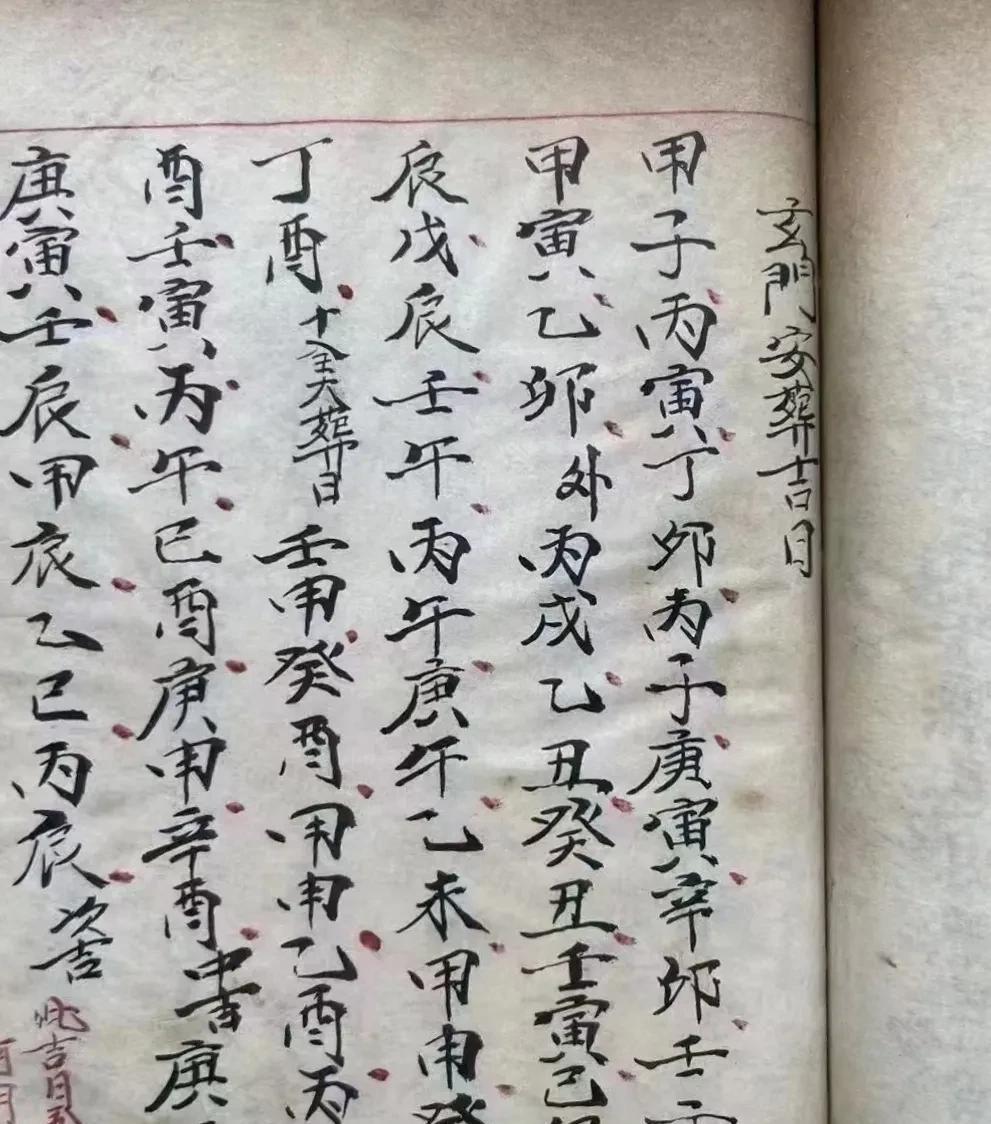 玄門安葬吉日
甲子丙寅丁卯丙子庚寅辛卯壬
甲寅乙卯外丙戌乙丑癸丑壬寅己
辰戊辰壬午丙午庚午乙未甲申癸
丁酉十全大葬日壬申癸酉甲申乙酉丙
酉壬寅丙午己酉庚申辛酉中吉庚
庚寅壬辰甲辰乙巳丙辰次吉
此吉日